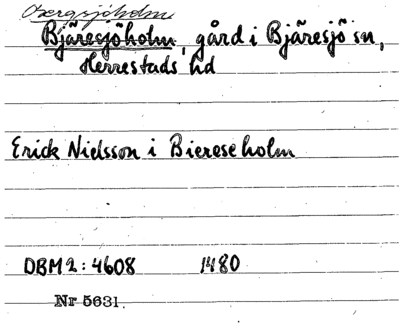 Bjäresjöholm, gård i Bjäresjö sn,
Herrestads hd
Erick Nielsson i Biereseholm
DBM2:4608 1480
Nr 5631.